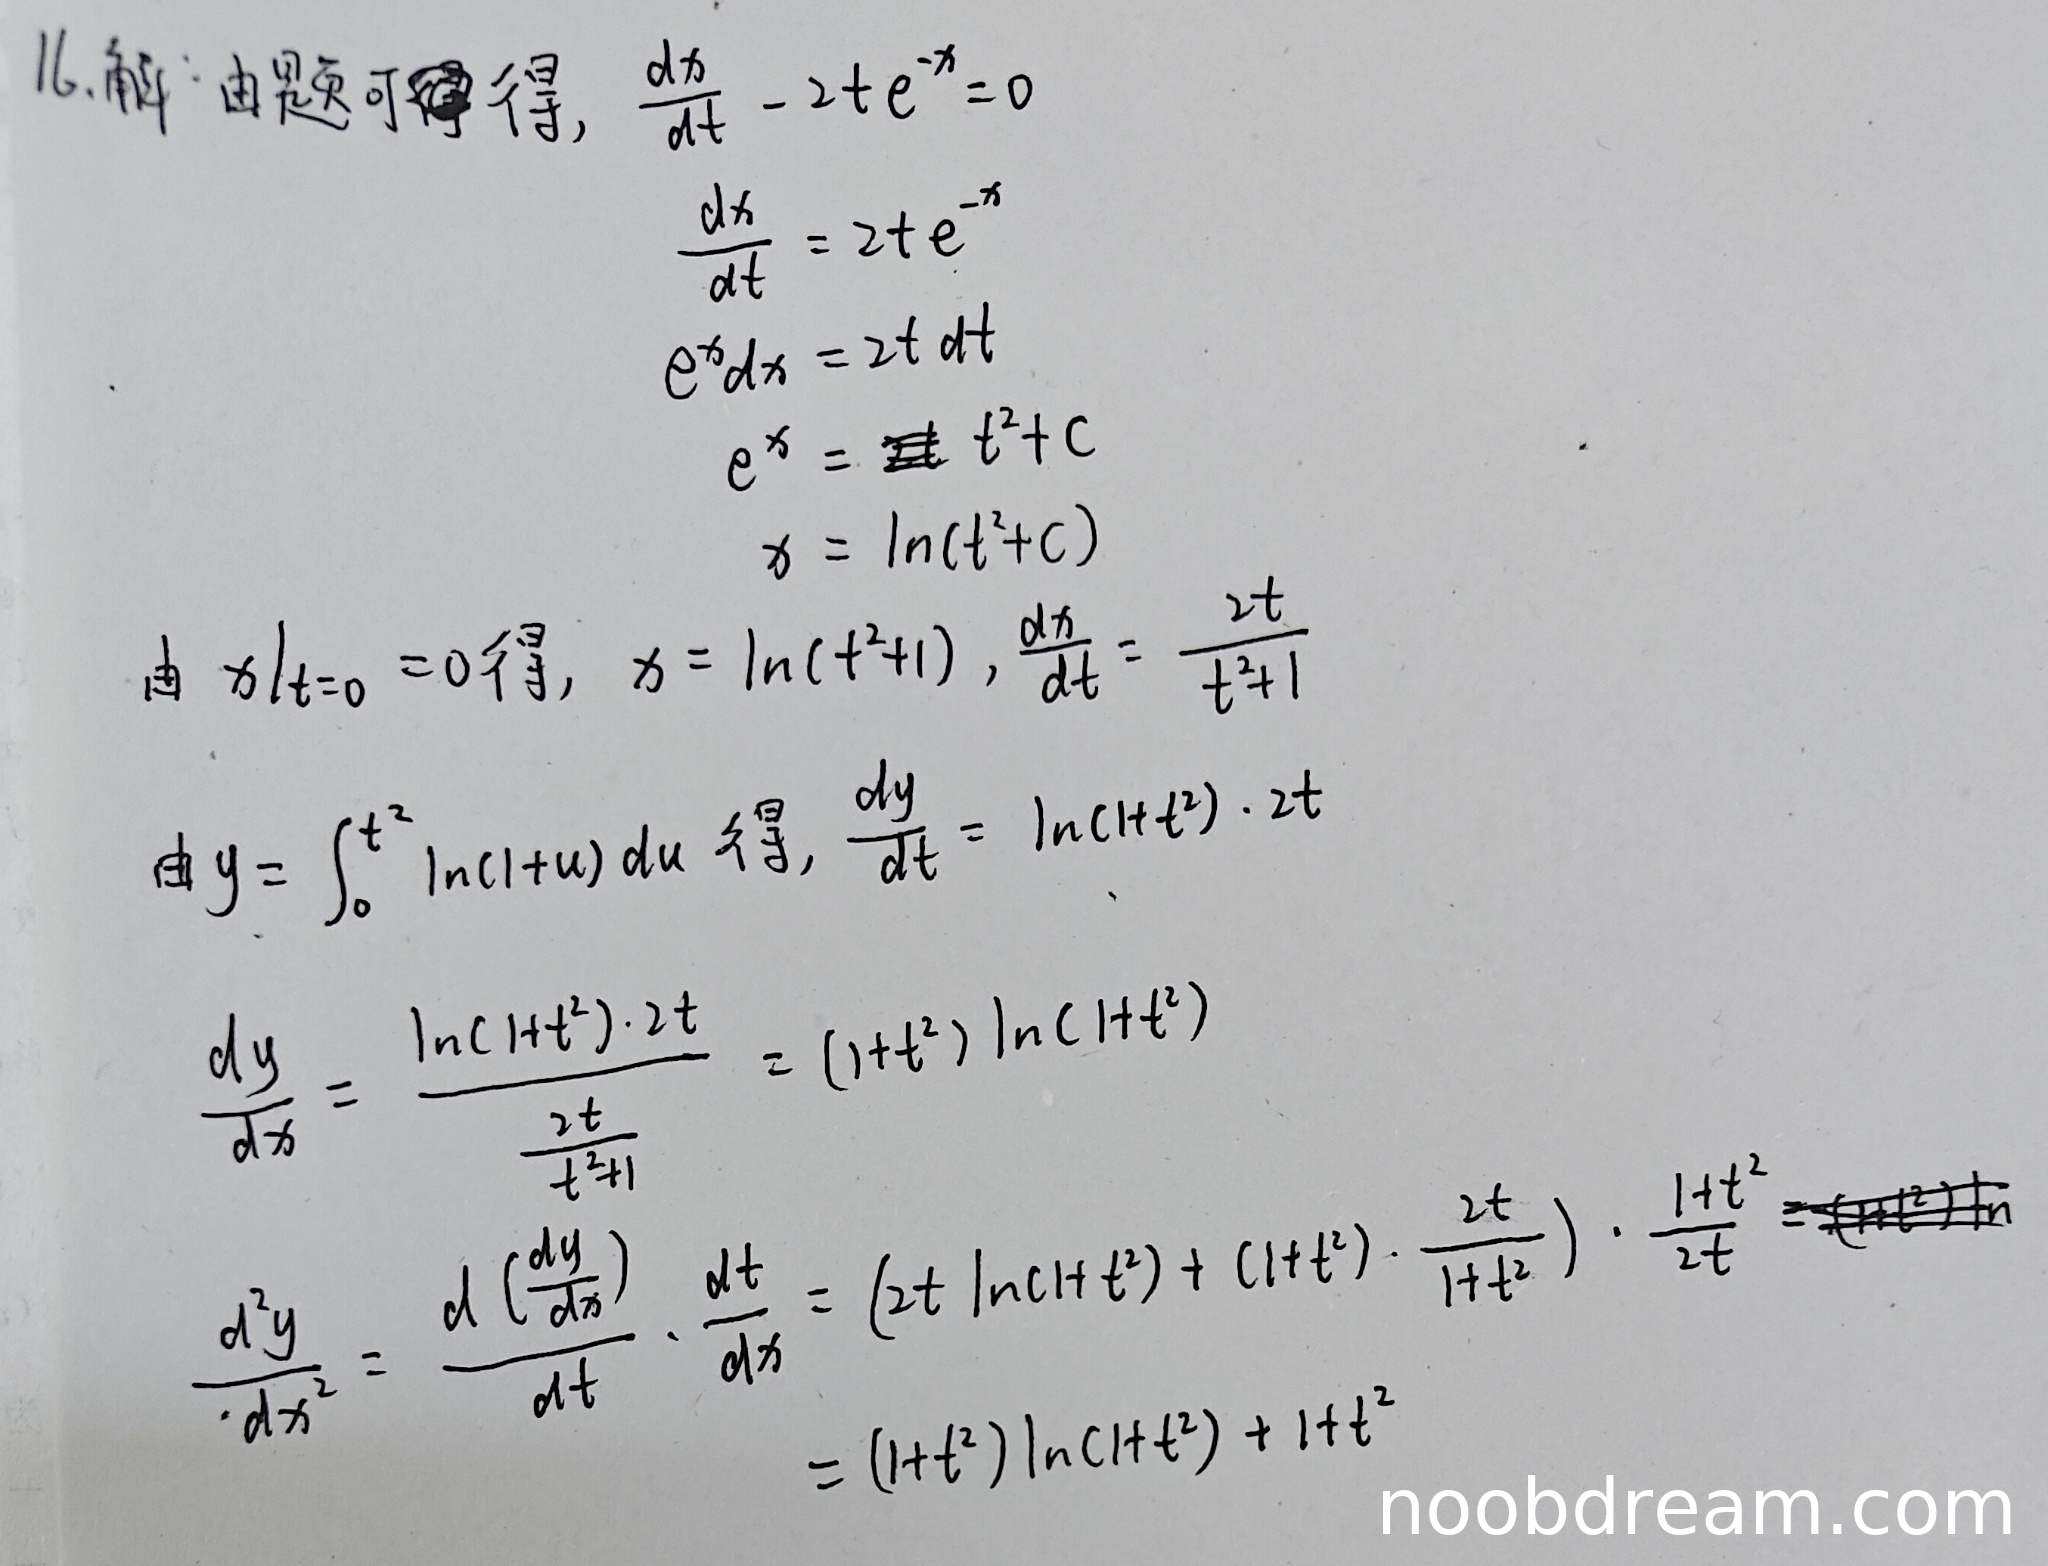 16.解:由题可得, dx/dt - 2te^{-x} = 0
dx/dt = 2te^{-x}
e^x dx = 2t dt
e^x = t²+C
x = ln(t²+C)
由 x|_{t=0} = 0得, x = ln(t²+1), dx/dt = 2t/(t²+1)
由 y = ∫_0^{t²} ln(1+u) du 得, dy/dt = ln(1+t²)·2t
dy/dx = (ln(1+t²)·2t)/(2t/(t²+1)) = (1+t²) ln(1+t²)
d²y/dx² = d(dy/dx)/dt · dt/dx = (2t ln(1+t²) + (1+t²)· 2t/(1+t²)) · (1+t²)/2t
= (1+t²) ln(1+t²) + 1+t²
noobdream.com